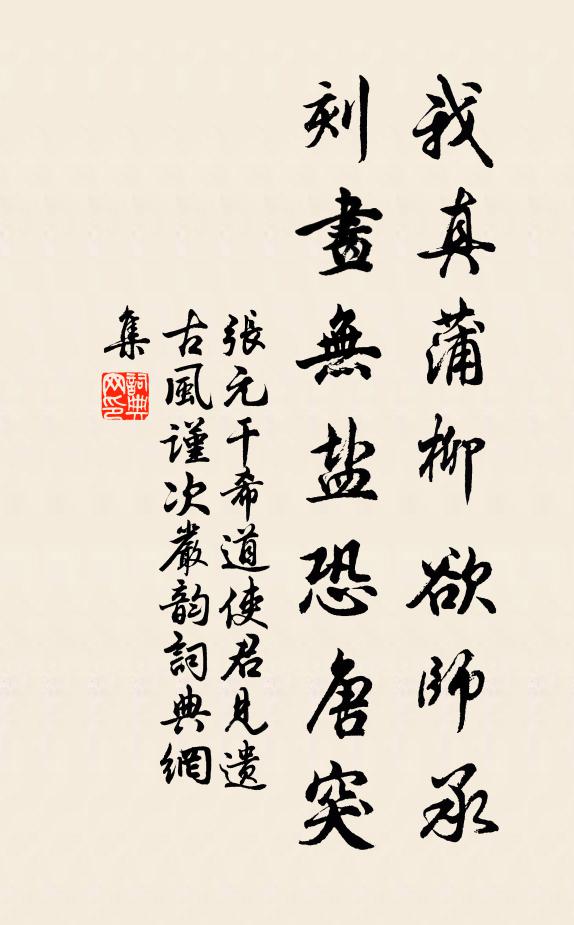 我真蒲柳欲師承
刻畫無盐恐唐突
張元干希道使君見遺
古風謹次嚴韵詞典網
集
詞典
网印